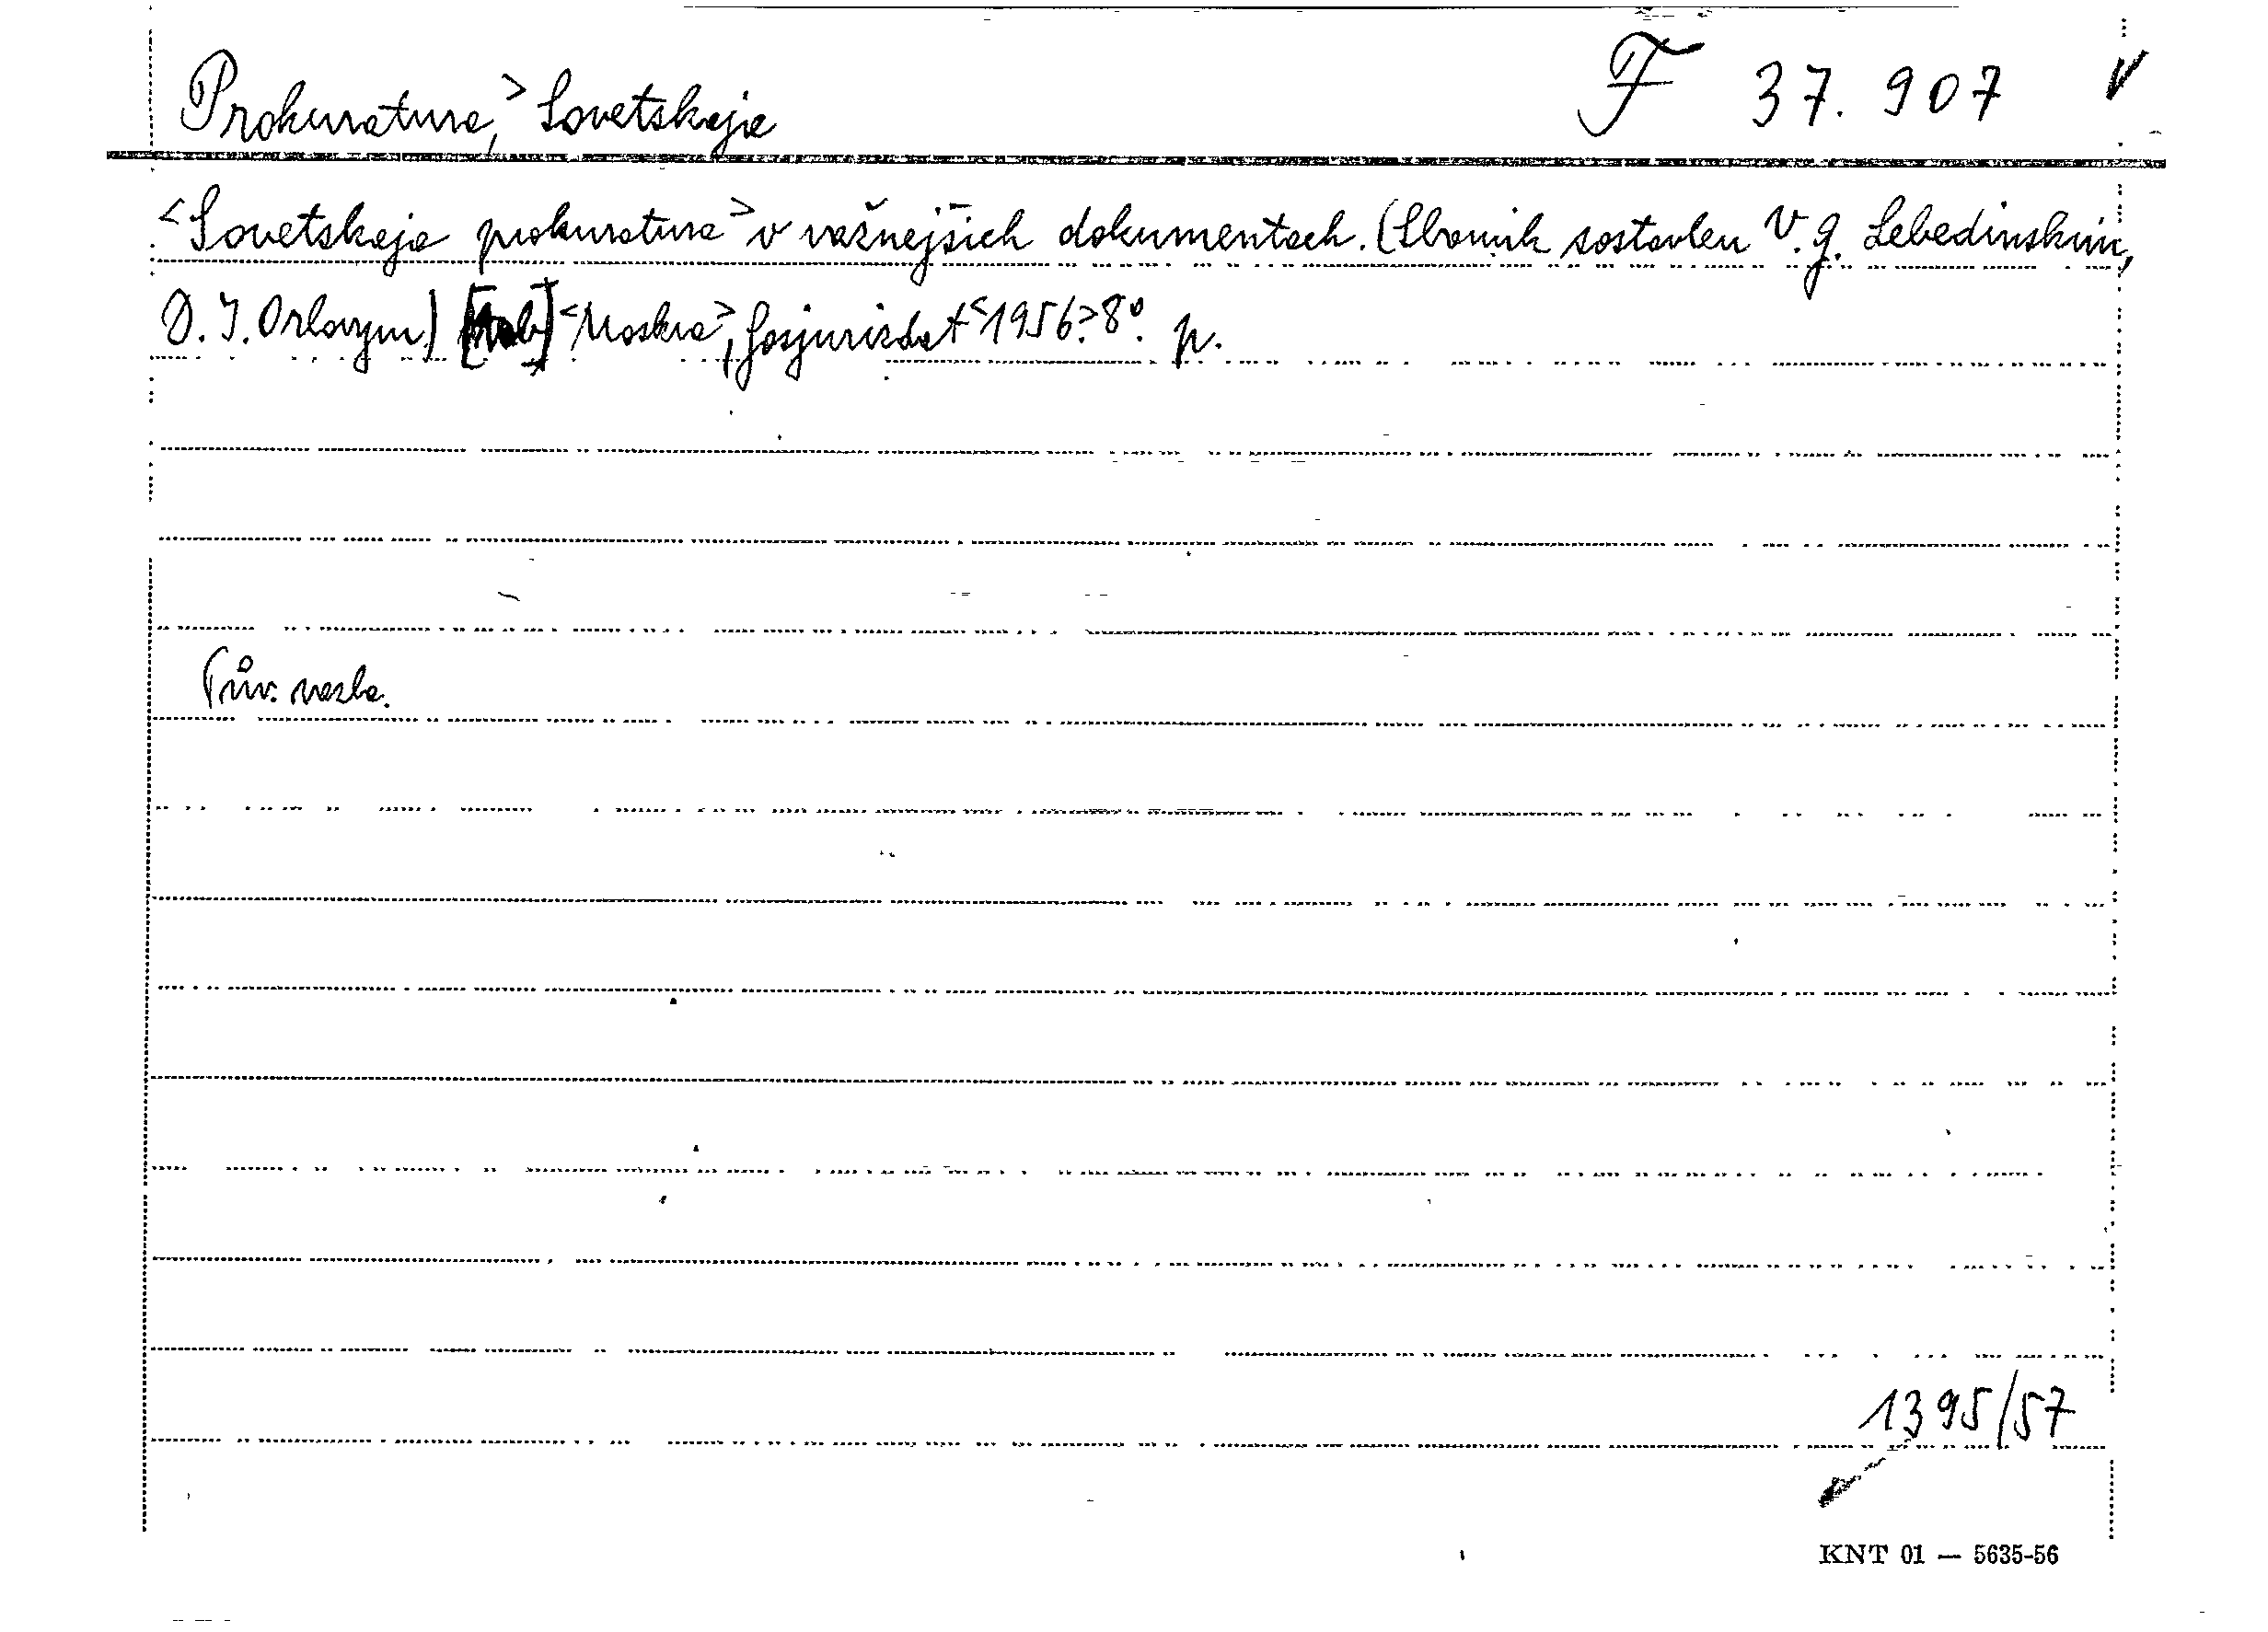 Prokuratura,> Sovetskaja F 37.907 V
<Sovetskaja prokuratura> v važnejšich dokumentach. (Sbornik sostavlen V. G. Lebedinskim,
D. I. Orlovym) <Moskva>, Gosjurizdat <1956>. 8°. p.
Pův. vazba.
1395/57
KNT 01 — 5635-56